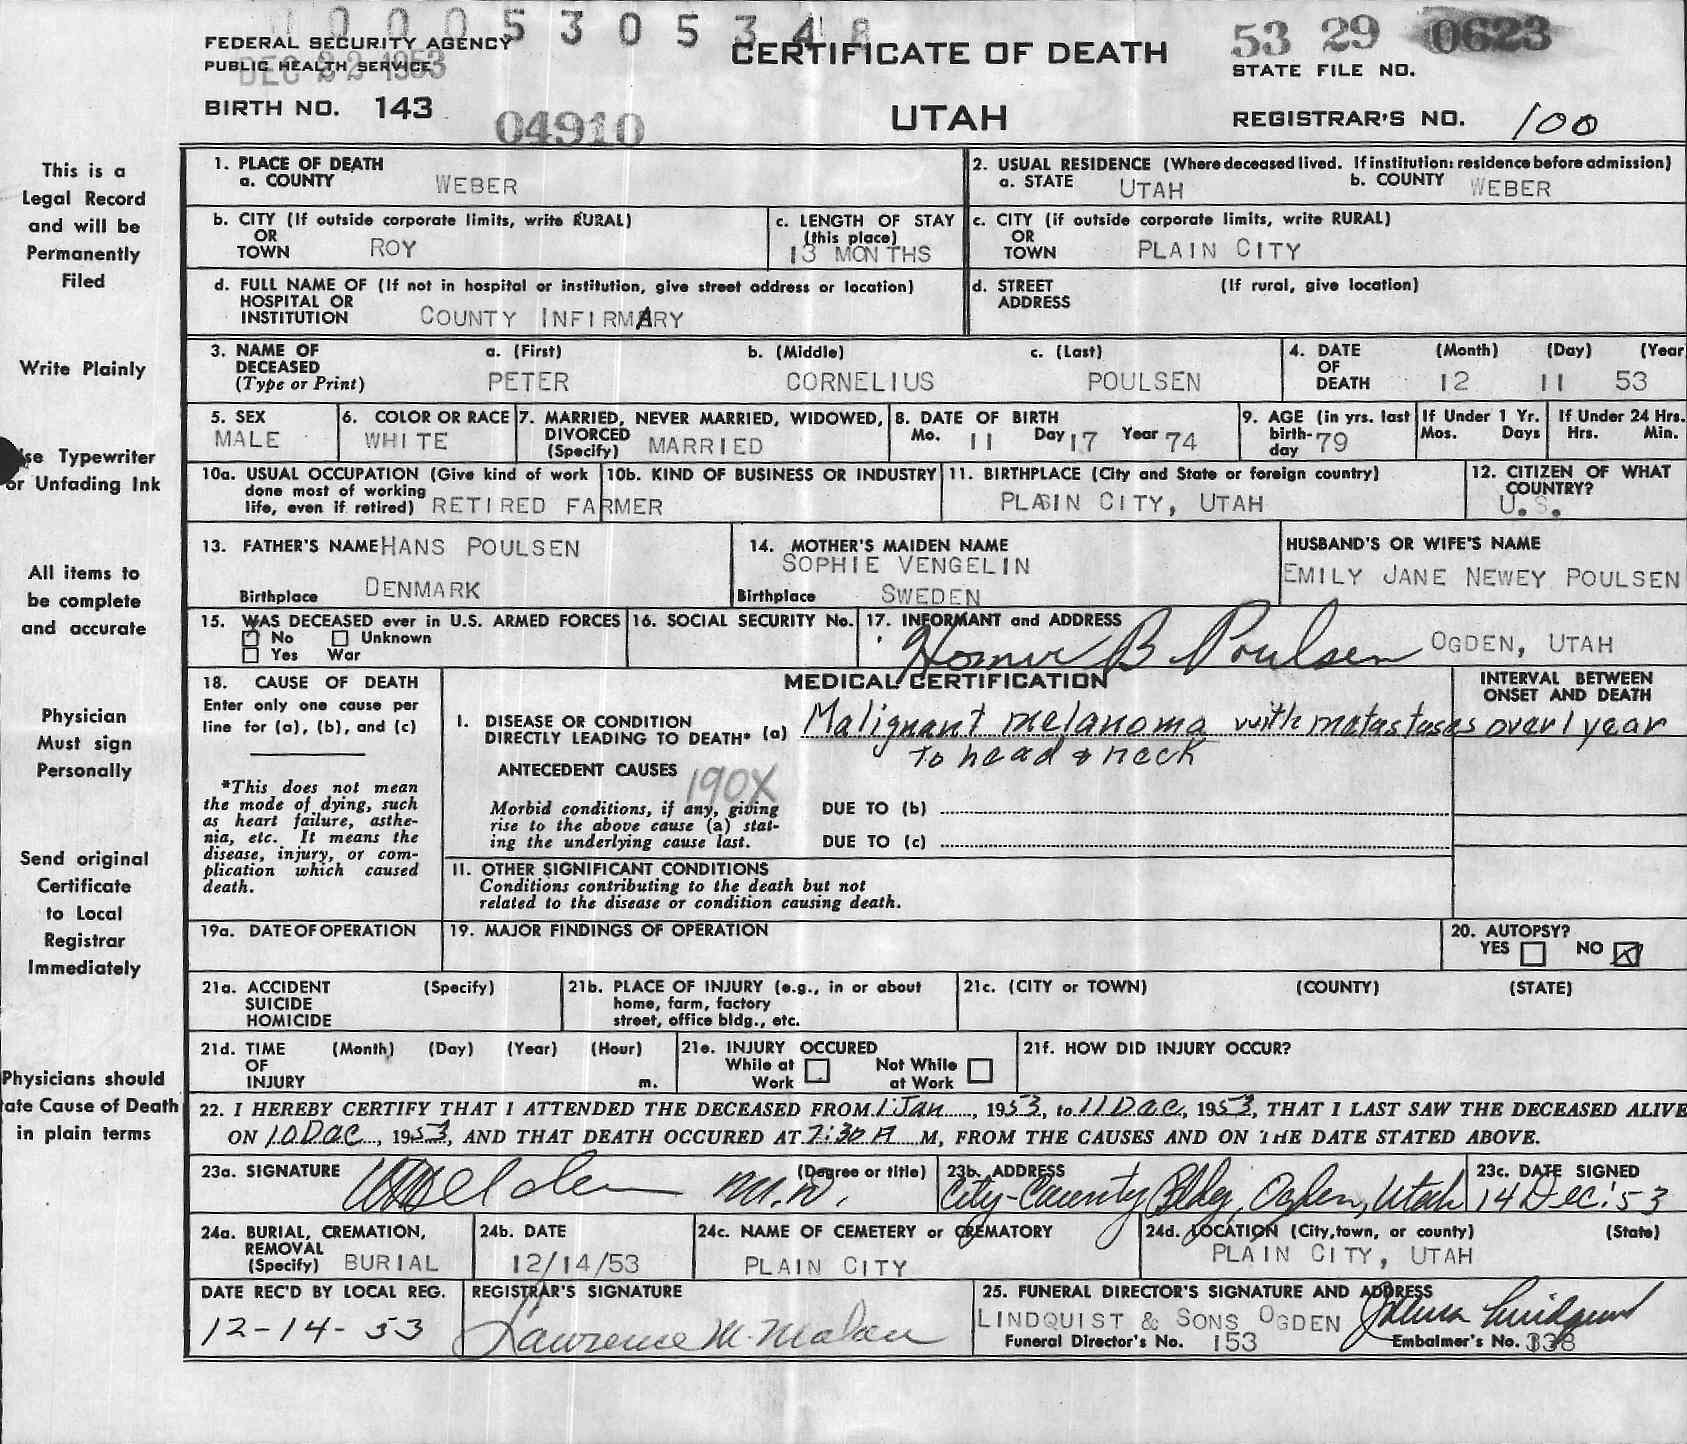 00005305348
FEDERAL SECURITY AGENCY
PUBLIC HEALTH SERVICE
DEC 22 1953
CERTIFICATE OF DEATH
53 29 0623
STATE FILE NO.
BIRTH NO. 143
04910
UTAH
REGISTRAR'S NO. 100
This is a
Legal Record
and will be
Permanently
Filed
1. PLACE OF DEATH
a. COUNTY WEBER
2. USUAL RESIDENCE (Where deceased lived. If institution: residence before admission)
a. STATE UTAH b. COUNTY WEBER
b. CITY (If outside corporate limits, write RURAL)
OR
TOWN ROY
c. LENGTH OF STAY
(this place)
13 MONTHS
c. CITY (if outside corporate limits, write RURAL)
OR
TOWN PLAIN CITY
d. FULL NAME OF (If not in hospital or institution, give street address or location)
HOSPITAL OR
INSTITUTION COUNTY INFIRMARY
d. STREET (If rural, give location)
ADDRESS
Write Plainly
3. NAME OF
DECEASED
(Type or Print)
a. (First) b. (Middle) c. (Last)
PETER CORNELIUS POULSEN
4. DATE
OF
DEATH
(Month) (Day) (Year
12 11 53
5. SEX
MALE
6. COLOR OR RACE
WHITE
7. MARRIED, NEVER MARRIED, WIDOWED,
DIVORCED
(Specify) MARRIED
8. DATE OF BIRTH
Mo. 11 Day 17 Year 74
9. AGE (in yrs. last
birth-
day 79
If Under 1 Yr.
Mos. Days
If Under 24 Hrs.
Hrs. Min.
se Typewriter
or Unfading Ink
10a. USUAL OCCUPATION (Give kind of work
done most of working
life, even if retired) RETIRED FARMER
10b. KIND OF BUSINESS OR INDUSTRY
11. BIRTHPLACE (City and State or foreign country)
PLAIN CITY, UTAH
12. CITIZEN OF WHAT
COUNTRY?
U.S.
All items to
be complete
and accurate
13. FATHER'S NAME HANS POULSEN
Birthplace DENMARK
14. MOTHER'S MAIDEN NAME
SOPHIE VENGELIN
Birthplace SWEDEN
HUSBAND'S OR WIFE'S NAME
EMILY JANE NEWEY POULSEN
15. WAS DECEASED ever in U.S. ARMED FORCES
No Unknown
Yes War
16. SOCIAL SECURITY No.
17. INFORMANT and ADDRESS
Homer B Poulsen OGDEN, UTAH
Physician
Must sign
Personally
18. CAUSE OF DEATH
Enter only one cause per
line for (a), (b), and (c)
*This does not mean
the mode of dying, such
as heart failure, asthe-
nia, etc. It means the
disease, injury, or com-
plication which caused
death.
MEDICAL CERTIFICATION
INTERVAL BETWEEN
ONSET AND DEATH
I. DISEASE OR CONDITION
DIRECTLY LEADING TO DEATH* (a) Malignant melanoma with metastases over 1 year
to head & neck
ANTECEDENT CAUSES
190X
Morbid conditions, if any, giving
rise to the above cause (a) stat-
ing the underlying cause last.
DUE TO (b)
DUE TO (c)
II. OTHER SIGNIFICANT CONDITIONS
Conditions contributing to the death but not
related to the disease or condition causing death.
Send original
Certificate
to Local
Registrar
Immediately
19a. DATE OF OPERATION
19. MAJOR FINDINGS OF OPERATION
20. AUTOPSY?
YES NO
21a. ACCIDENT (Specify)
SUICIDE
HOMICIDE
21b. PLACE OF INJURY (e.g., in or about
home, farm, factory
street, office bldg., etc.
21c. (CITY or TOWN) (COUNTY) (STATE)
21d. TIME (Month) (Day) (Year) (Hour)
OF
INJURY m.
21e. INJURY OCCURED
While at Not While
Work at Work
21f. HOW DID INJURY OCCUR?
Physicians should
ate Cause of Death
in plain terms
22. I HEREBY CERTIFY THAT I ATTENDED THE DECEASED FROM 1 Jan, 1953, to 11 Dec, 1953, THAT I LAST SAW THE DECEASED ALIVE
ON 10 Dec, 1953, AND THAT DEATH OCCURED AT 7:30 A M, FROM THE CAUSES AND ON THE DATE STATED ABOVE.
23a. SIGNATURE (Degree or title)
M.D.
23b. ADDRESS
City-County Bldg, Ogden, Utah
23c. DATE SIGNED
14 Dec. '53
24a. BURIAL, CREMATION,
REMOVAL
(Specify) BURIAL
24b. DATE
12/14/53
24c. NAME OF CEMETERY or CREMATORY
PLAIN CITY
24d. LOCATION (City, town, or county) (State)
PLAIN CITY, UTAH
DATE REC'D BY LOCAL REG.
12-14-53
REGISTRAR'S SIGNATURE
Lawrence M. Malan
25. FUNERAL DIRECTOR'S SIGNATURE AND ADDRESS
LINDQUIST & SONS OGDEN
Funeral Director's No. 153 Embalmer's No. 338